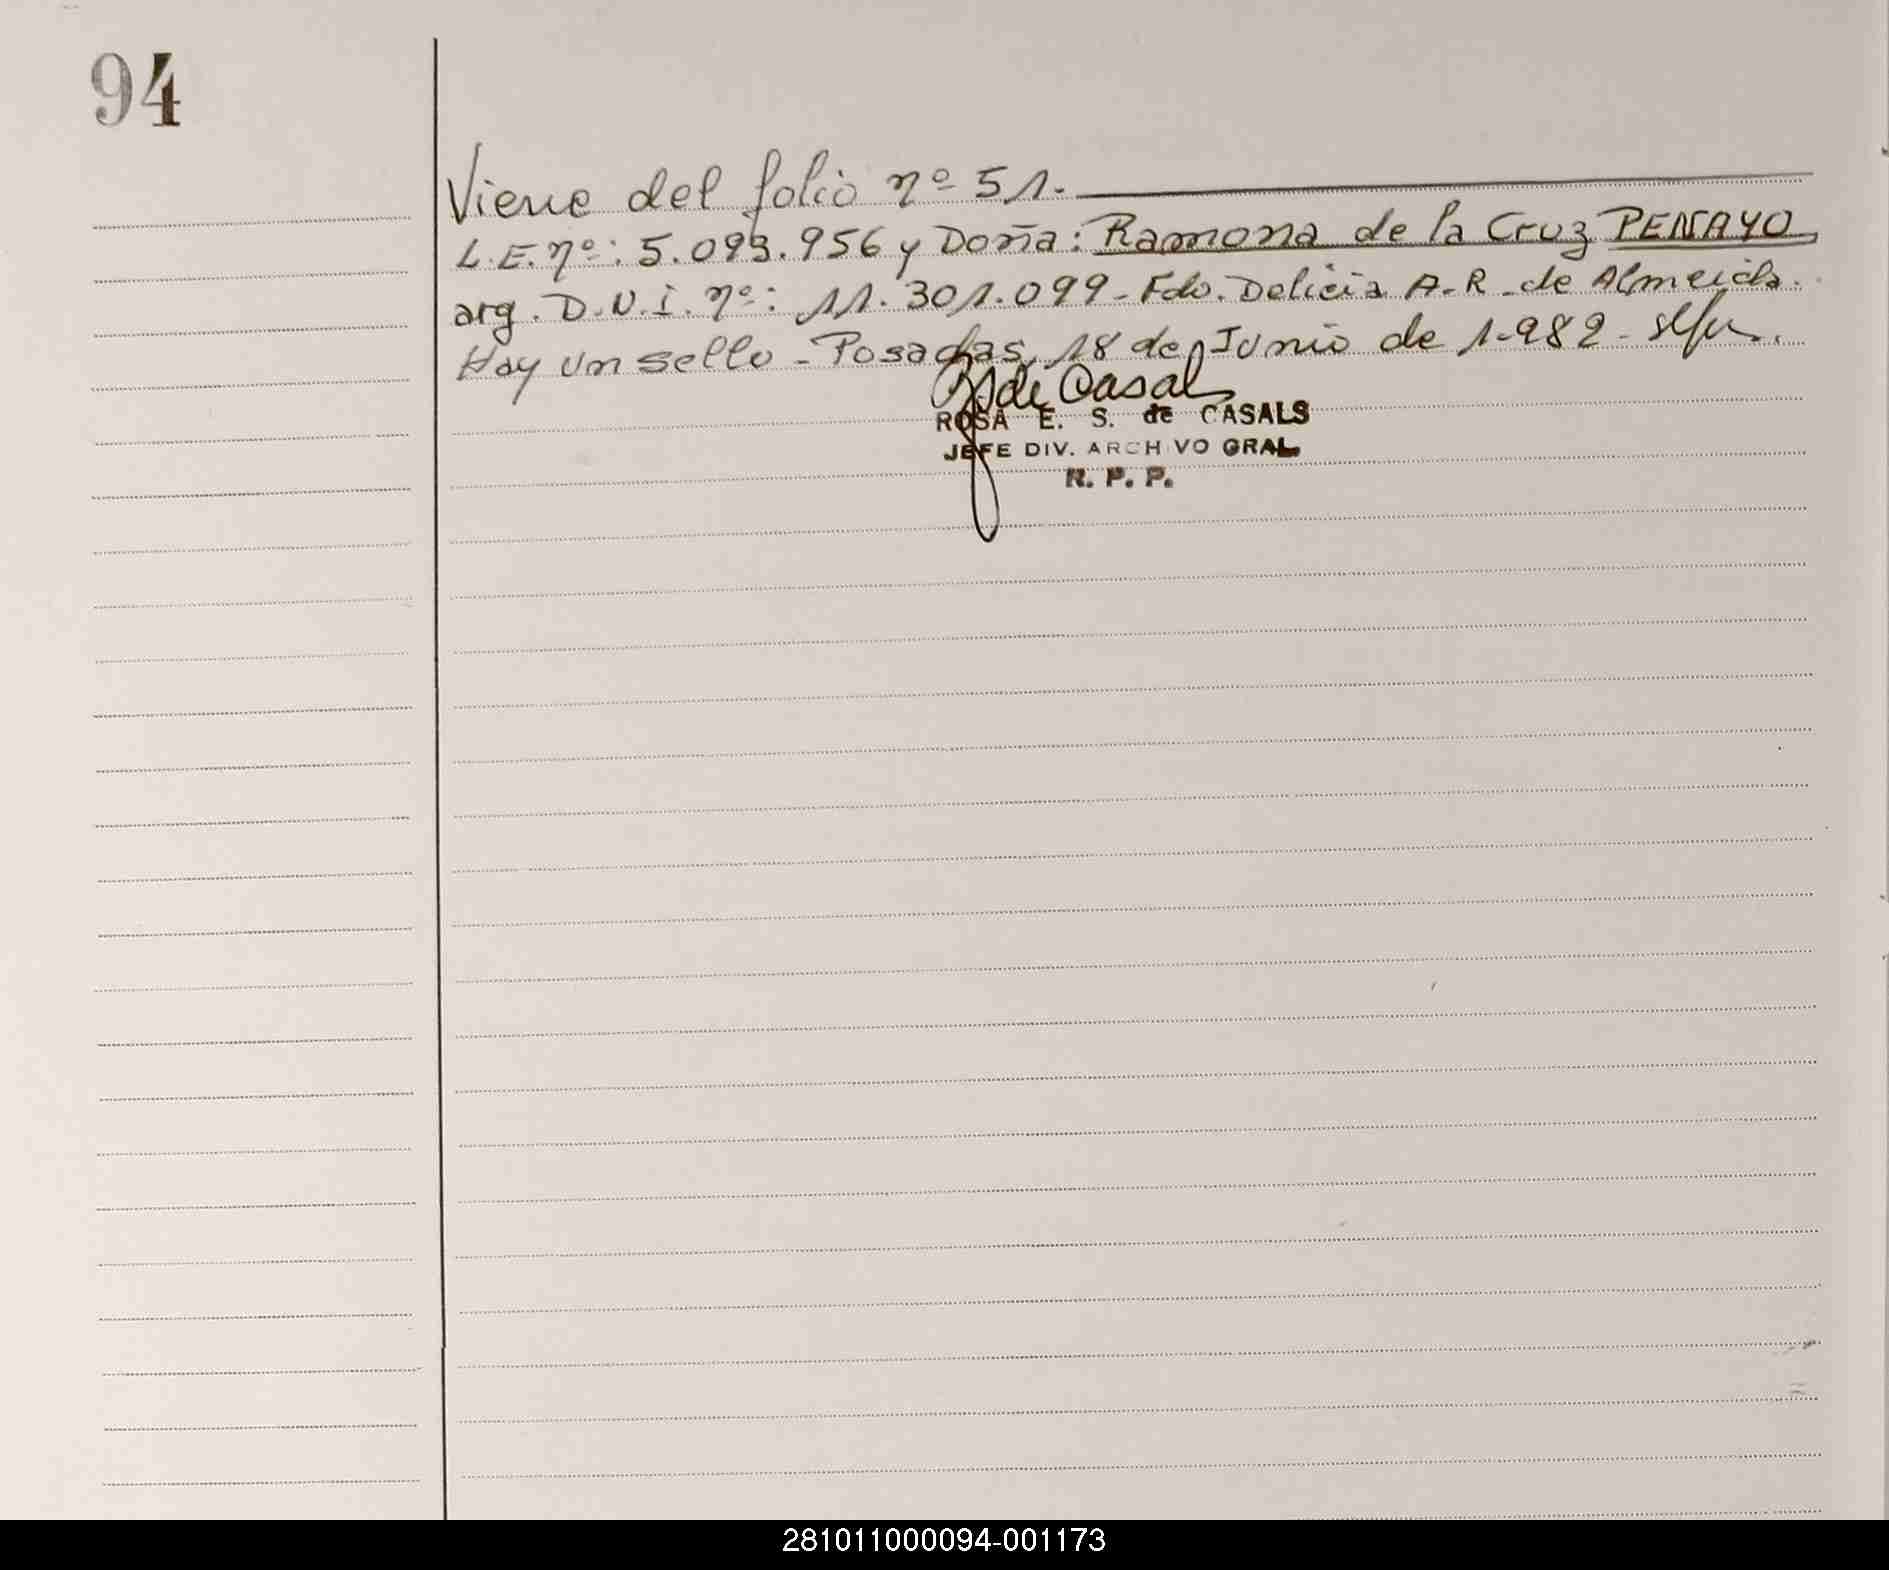 94
Viene del folio nº 51.
L.E. nº: 5.093.956 y Doña: Ramona de la Cruz PENAYO,
arg. D.N.I. nº: 11.301.099 - Fdo. Delicia A. R. de Almeida.
Hay un sello - Posadas, 18 de Junio de 1.982 -
ROSA E. S. de CASALS
JEFE DIV. ARCHIVO GRAL.
R. P. P.
281011000094-001173